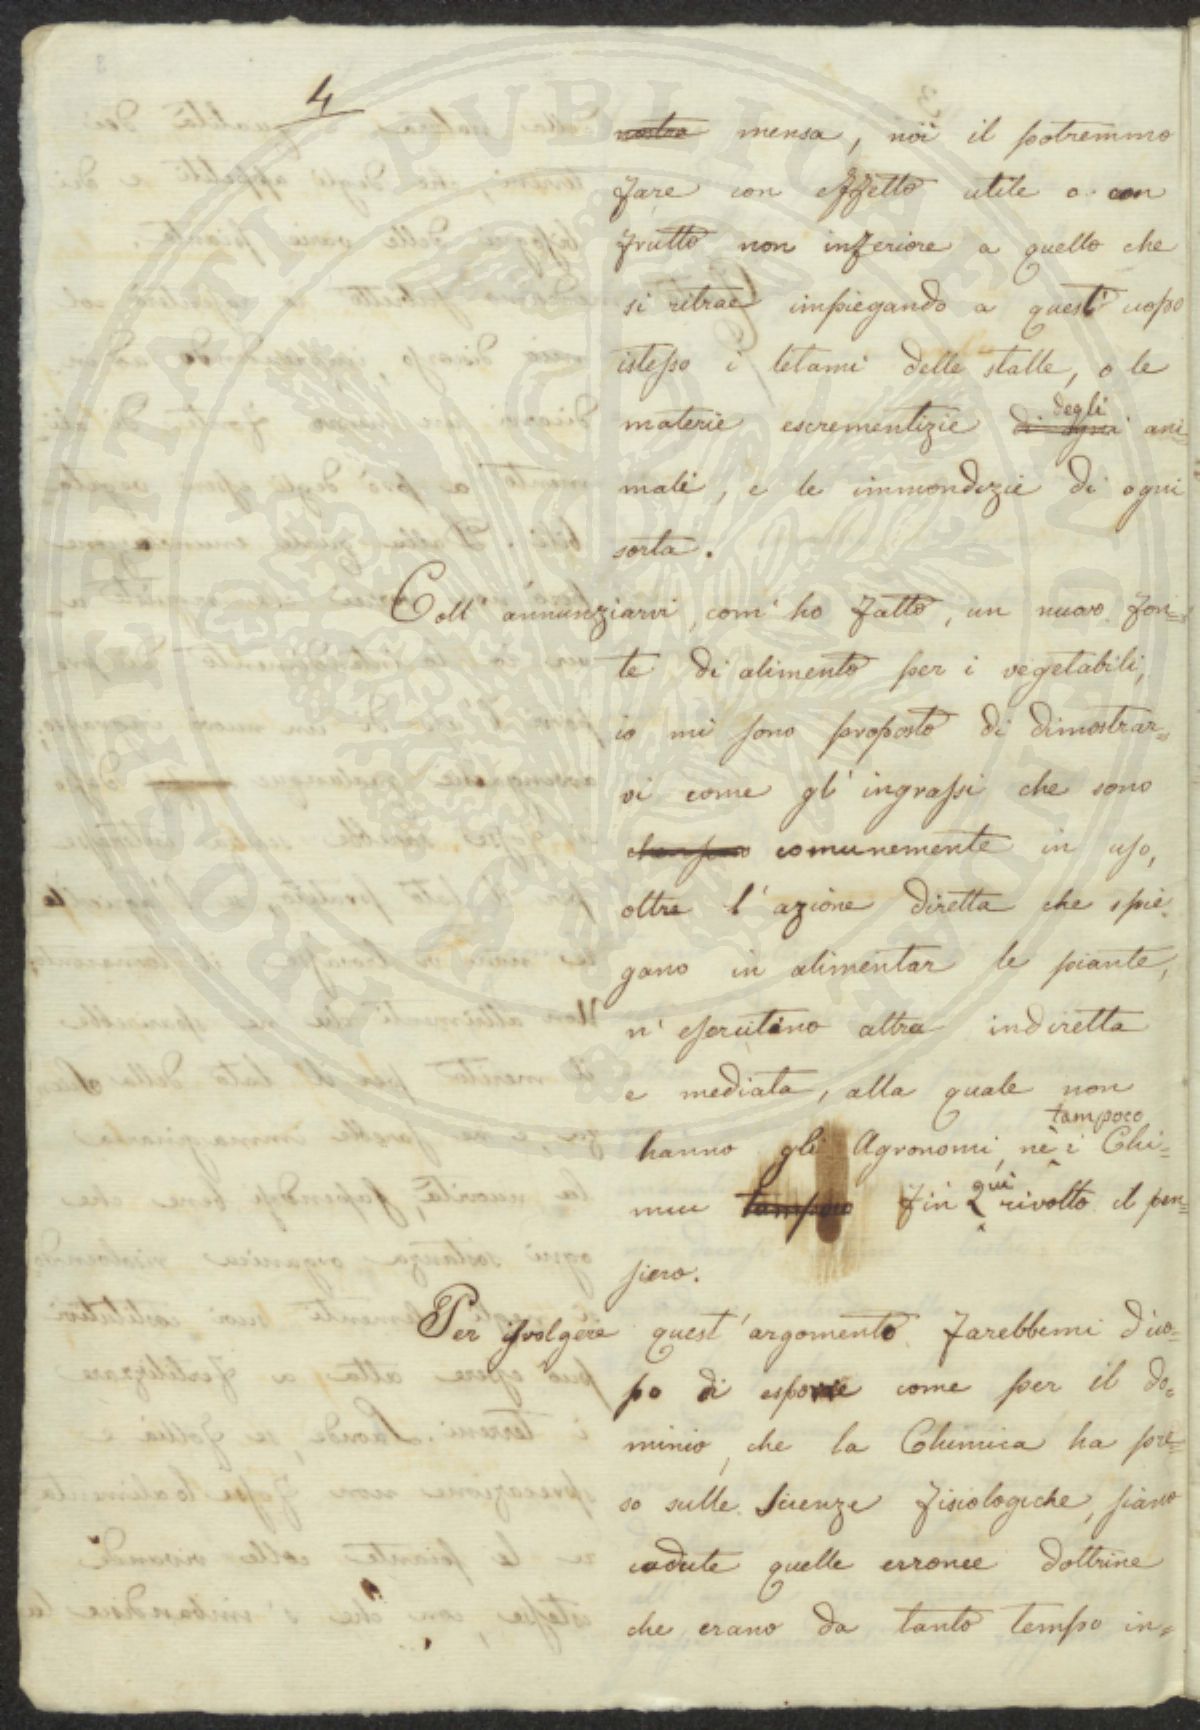 4
nostra mensa, noi il potremmo
fare con effetto utile o con
frutto non inferiore a quello che
si ritrae impiegando a quest' uopo
istesso i letami delle stalle, o le
materie escrementizie di ogni degli ani
mali, e le immondizie di ogni
sorta.
Coll' annunziarvi, com' ho fatto, un nuovo fon=
te di alimento per i vegetabili,
io mi sono proposto di dimostrar=
vi come gl' ingrassi che sono
comunemente in uso,
oltre l' azione diretta che spie.
gano in alimentar le piante,
n' esercitino altra indiretta
e mediata, alla quale non
hanno gli Agronomi, nè tampoco i Chi=
mici tampoco fin qui rivolto il pen=
siero.
Per isvolgere quest' argomento farebbemi d'uo=
po di esporre come per il do=
minio, che la Chimica ha pre=
so sulle Scienze fisiologiche, siano
cadute quelle erronee dottrine
che erano da tanto tempo in=